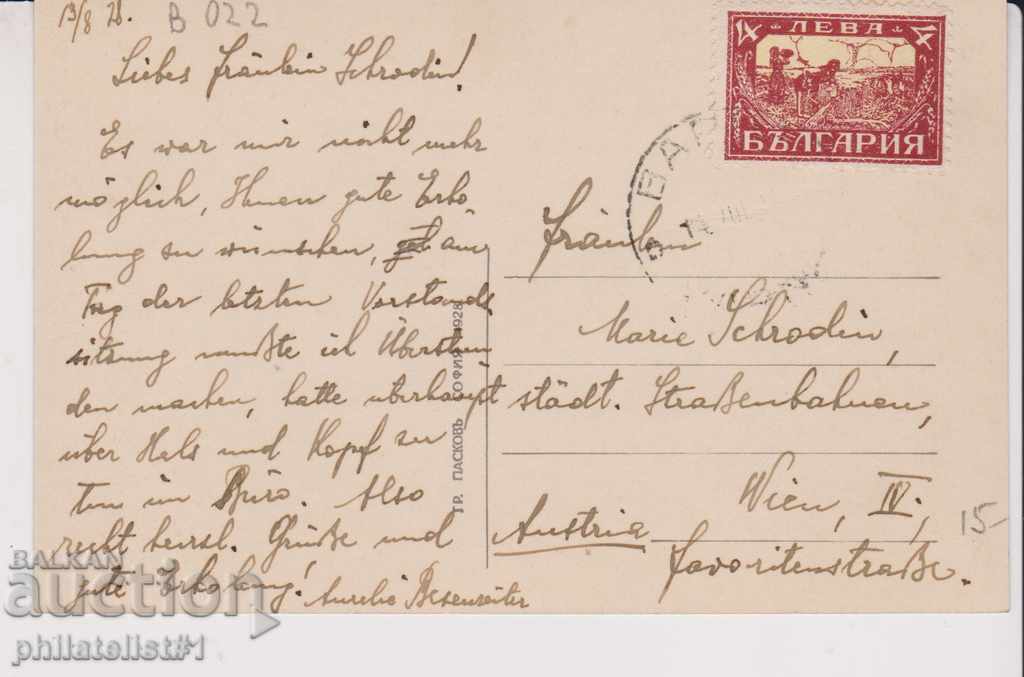 13/8 28.
B 022
Liebes Fräulein Schrodin!
Es war mir nicht mehr
möglich, Ihnen gute Erho-
lung zu wünschen, am
Tag der letzten Vorstands
sitzung mußte ich Überstun
den machen, hatte überhaupt
über Hals und Kopf zu
tun im Büro. Also
recht herzl. Grüße und
gute Erholung! Aurelie Besenreiter
ГР. ПАСКОВЪ СОФИЯ 1928
4 ЛЕВА 4
БЪЛГАРИЯ
ВАР
Fräulein
Marie Schrodin,
städt. Straßenbahnen,
Wien, IV.,
Austria
Favoritenstraße.
15-
BALKAN
auction
philatelist#1